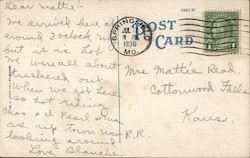 Dear Matti:-
We arrived here at
around 3 o'clock
but it is hot
We were all about
tuckered out
when we got here
so hot riding
Chas & Pearl &
are up town now
looking around
Love Blanche.
SPRINGFIELD
JUL
PM
1938
MO.
POST
CARD
Mrs Mattie Read
Cottonwood Falls
Kans.
R.R.